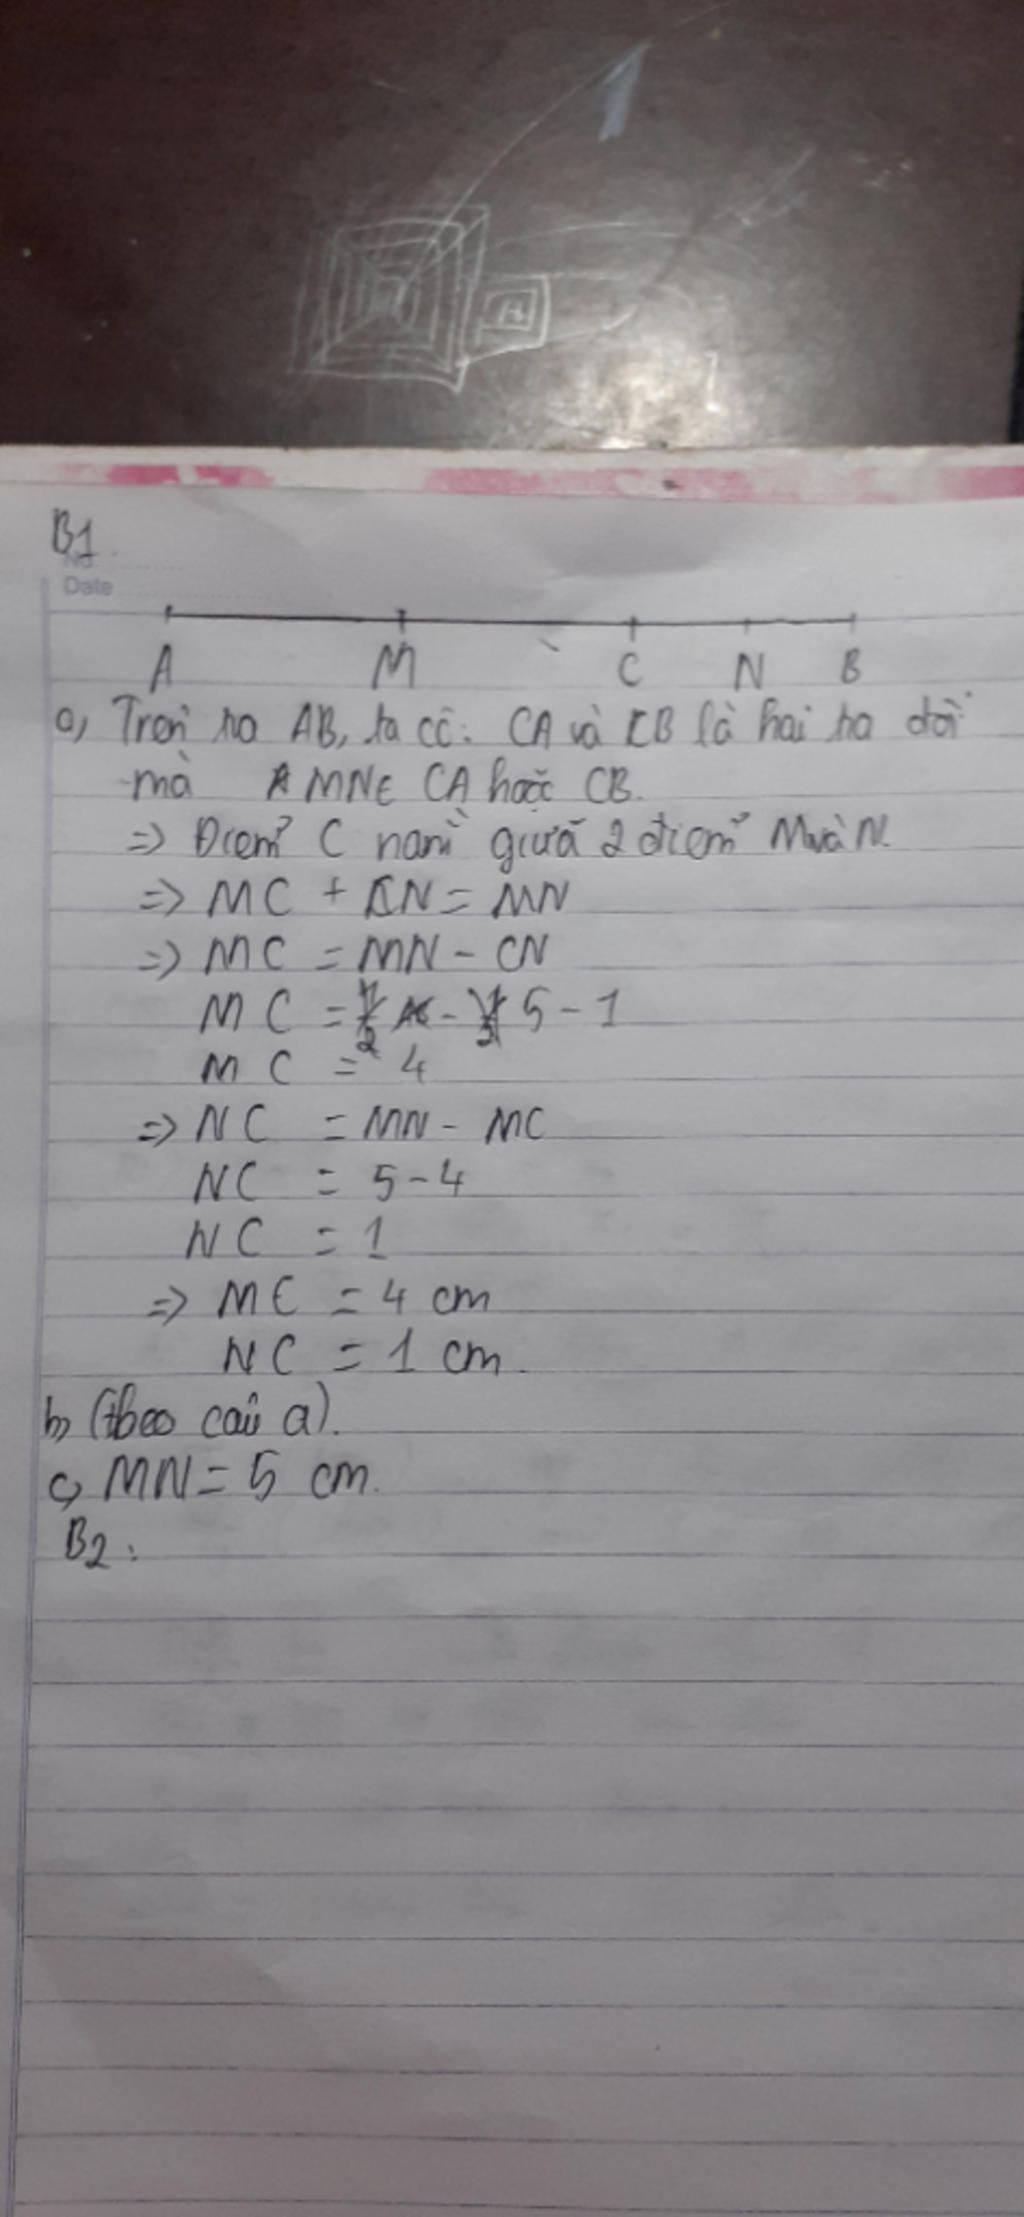 B1
No.
Date
A M C N B
a, Trên tia AB, ta có: CA và CB là hai tia đối
mà MN∈ CA hoặc CB.
=> Điểm C nằm giữa 2 điểm M và N
=> MC + CN = MN
=> MC = MN - CN
MC = 5 - 1
MC = 4
=> NC = MN - MC
NC = 5 - 4
NC = 1
=> MC = 4 cm
NC = 1 cm.
b, (theo câu a).
c, MN = 5 cm.
B2: